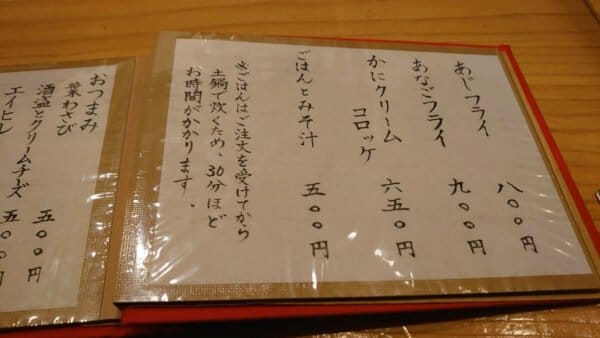 あじフライ 八〇〇円
あなごフライ 九〇〇円
かにクリーム
コロッケ 六五〇円
ごはんとみそ汁 五〇〇円
※ごはんはご注文を受けてから
土鍋で炊くため、30分ほど
お時間がかかります。
おつまみ
葉わさび 五〇〇円
酒盗とクリームチーズ 五〇〇円
エイヒレ